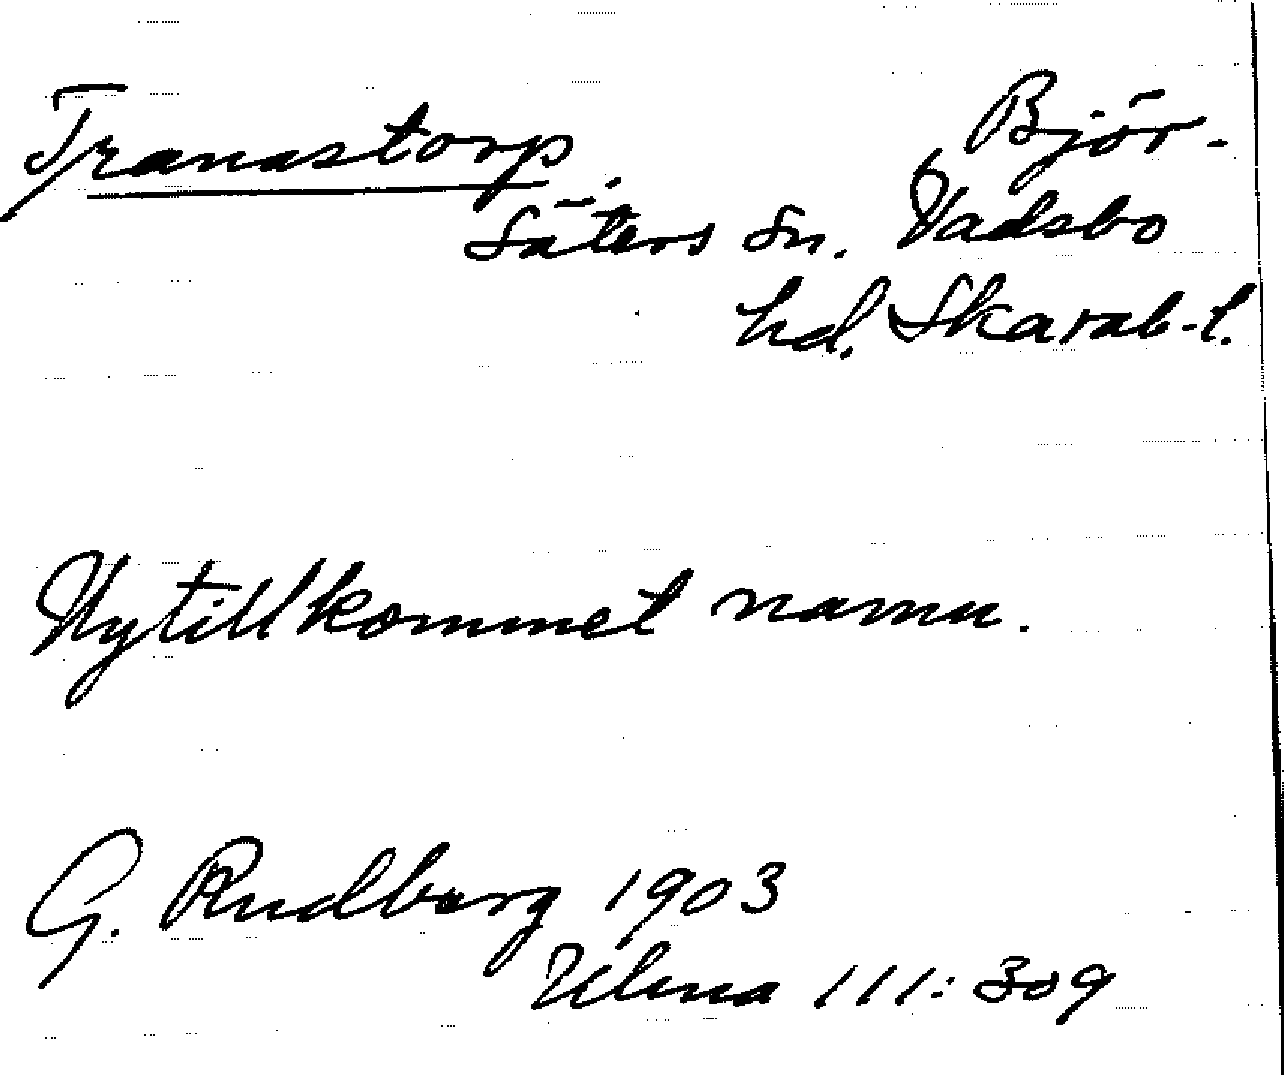 Tranastorp. Björ-
Säters sn. Vadsbo
hd. Skarab-l.
Nytillkommet namn.
G. Rudberg 1903
Ulma 111:309